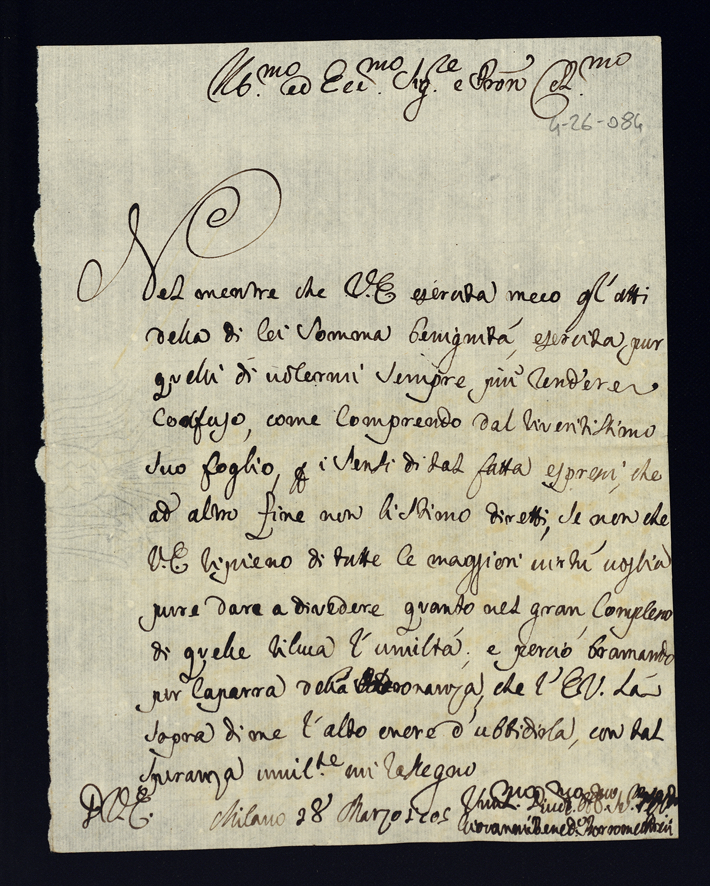 Ill.mo ed Ecc.mo Sig.re e Pron Col.mo
4-26-084
Nel mentre che V.E esercita meco gl'atti
della di lei somma benignità, esercita pur
quelli di volermi sempre più rendere
Confuso, come Comprendo dal riveritissimo
suo foglio, i sensi di tal fatta espressi, che
ad altro fine non li stimo diretti, se non che
V.E ripieno di tutte le maggiori virtù voglia
pure dare a divedere quanto nel gran Complesso
di quelle riluca l'umiltà, e perciò bramando
pur caparra della, che l'E.V. hà
sopra di me l'alto onore d'ubbidirla, con tal
speranza umil.te mi rassegno
D V.E.
Milano 28 Marzo 1705
Giovanni Bened.o Borromeo